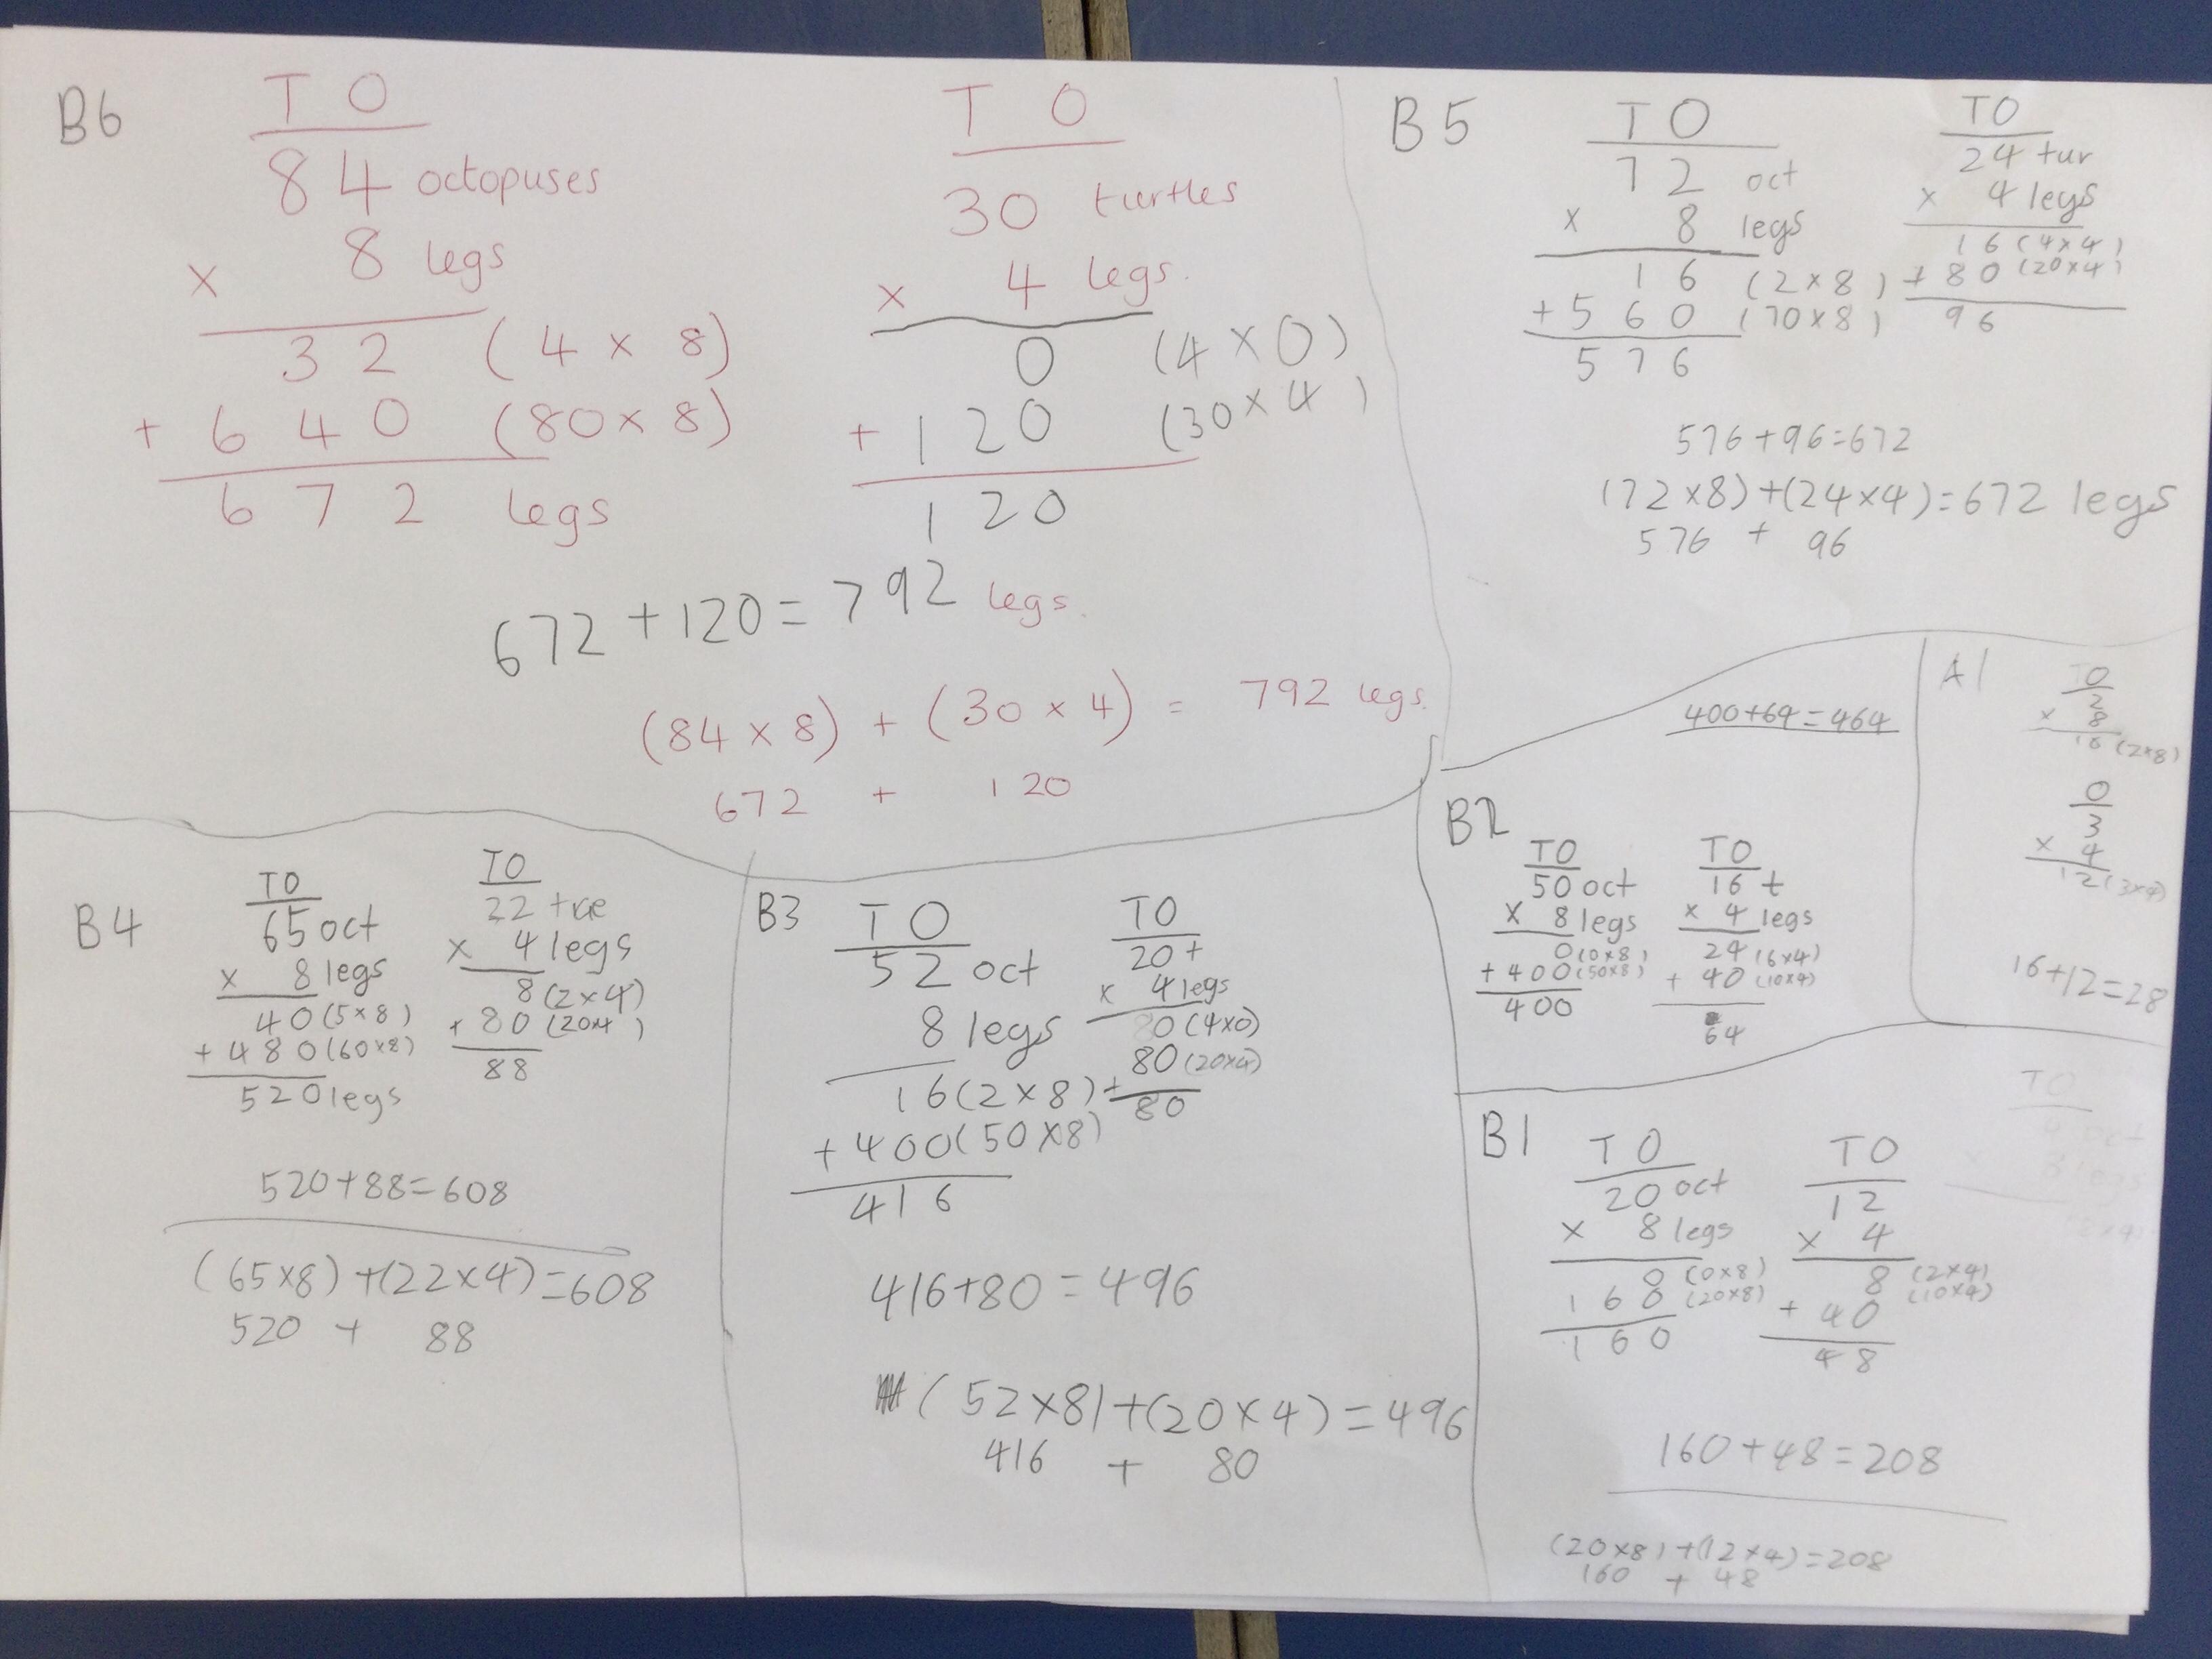 B6
T O
84 octopuses
× 8 legs
32 (4 × 8)
+ 640 (80 × 8)
672 legs
T O
30 turtles
× 4 legs.
0 (4 × 0)
+ 120 (30 × 4)
120
672 + 120 = 792 legs.
(84 × 8) + (30 × 4) = 792 legs.
672 + 120
B5
T O
72 oct
× 8 legs
16 (2 × 8)
+ 560 (70 × 8)
576
TO
24 tur
× 4 legs
16 (4 × 4)
+ 80 (20 × 4)
96
576 + 96 = 672
(72 × 8) + (24 × 4) = 672 legs
576 + 96
B4
TO
65 oct
× 8 legs
40 (5 × 8)
+ 480 (60 × 8)
520 legs
TO
22
× 4 legs
8 (2 × 4)
+ 80 (20×4)
88
520 + 88 = 608
(65 × 8) + (22 × 4) = 608
520 + 88
B3
T O
52 oct
8 legs
16 (2 × 8)
+ 400 (50 × 8)
416
TO
20 t
× 4 legs
0 (4×0)
+ 80 (20×4)
80
416 + 80 = 496
(52 × 8) + (20 × 4) = 496
416 + 80
400 + 64 = 464
B2
TO
50 oct
× 8 legs
0 (0×8)
+ 400 (50×8)
400
TO
16 t
× 4 legs
24 (6×4)
+ 40 (10×4)
64
A1
TO
2
× 8
16 (2×8)
O
3
× 4
12 (3×4)
16 + 12 = 28
B1
T O
20 oct
× 8 legs
0 (0×8)
160 (20×8)
160
TO
12
× 4
8 (2×4)
+ 40 (10×4)
48
160 + 48 = 208
(20×8) + (12×4) = 208
160 + 48
TO